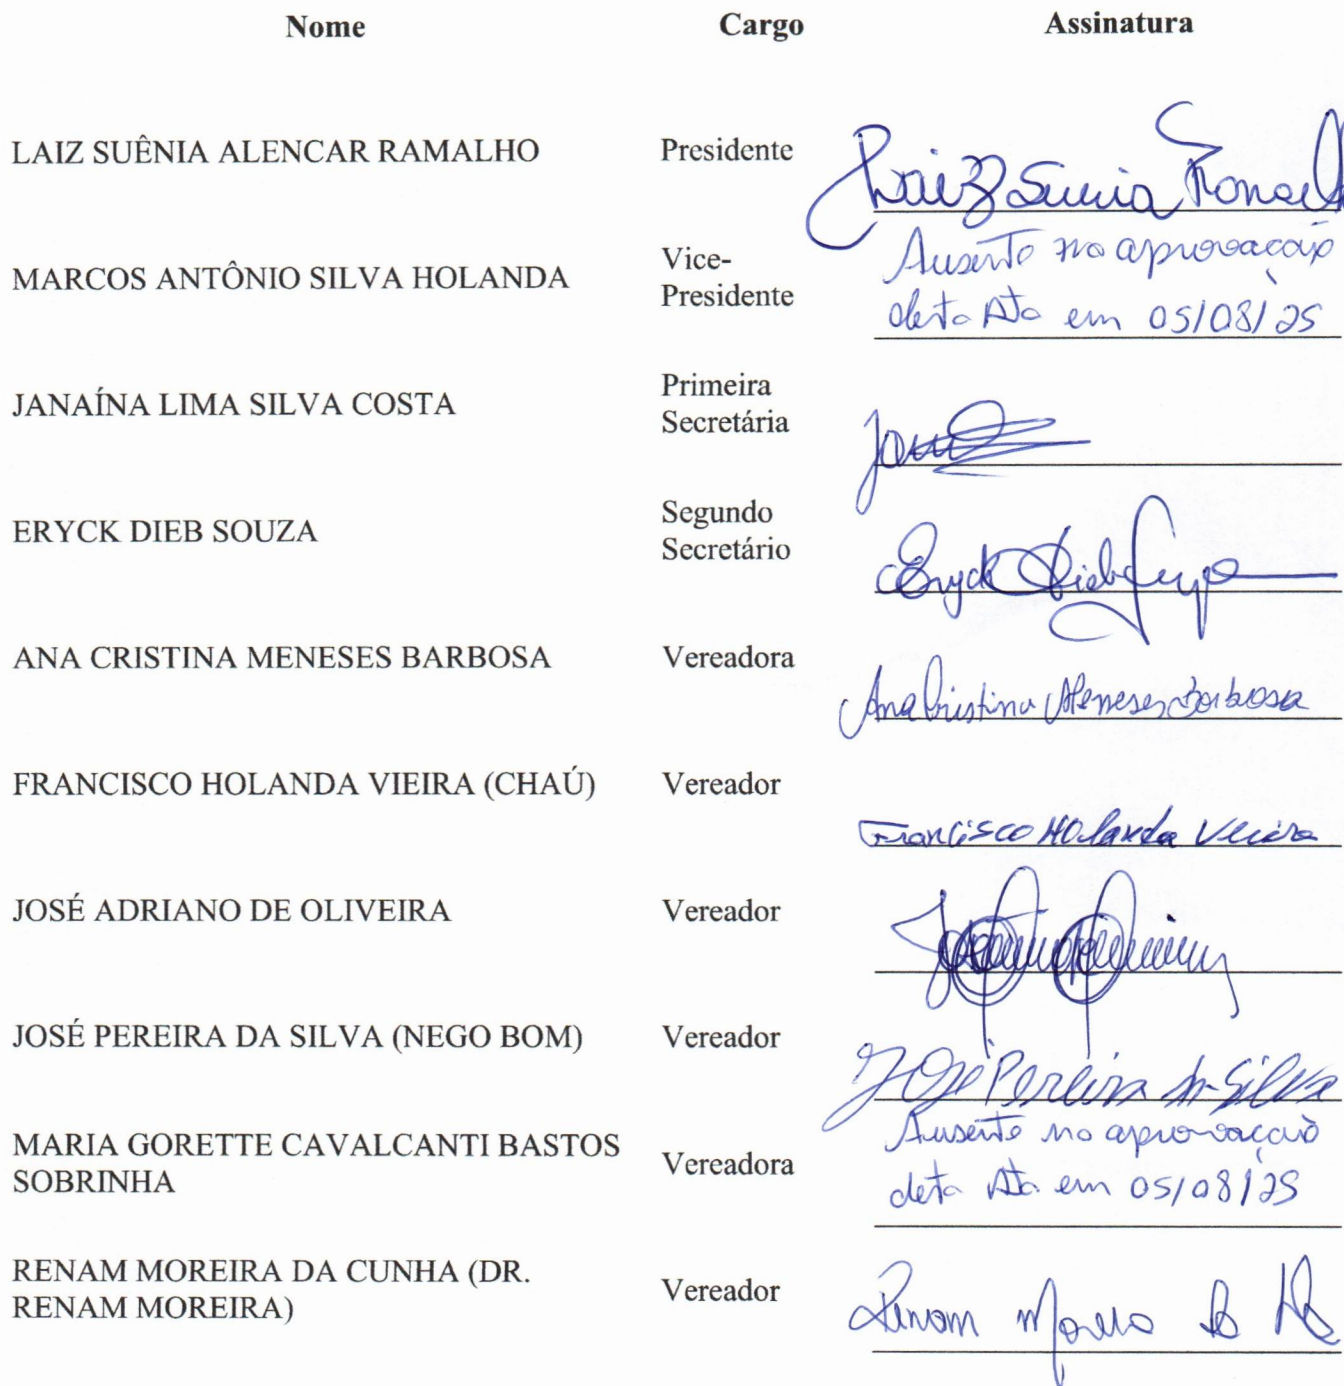 Nome Cargo Assinatura
LAIZ SUÊNIA ALENCAR RAMALHO Presidente Laiz Suênia
MARCOS ANTÔNIO SILVA HOLANDA Vice-
Presidente
Ausente na aprovação
desta Ata em 05/08/25
JANAÍNA LIMA SILVA COSTA Primeira
Secretária
ERYCK DIEB SOUZA Segundo
Secretário
Eryck Dieb
ANA CRISTINA MENESES BARBOSA Vereadora
Ana Cristina Meneses Barbosa
FRANCISCO HOLANDA VIEIRA (CHAÚ) Vereador
Francisco Holanda Vieira
JOSÉ ADRIANO DE OLIVEIRA Vereador
JOSÉ PEREIRA DA SILVA (NEGO BOM) Vereador
José Pereira da Silva
MARIA GORETTE CAVALCANTI BASTOS
SOBRINHA
Vereadora
Ausente na aprovação
desta Ata em 05/08/25
RENAM MOREIRA DA CUNHA (DR.
RENAM MOREIRA)
Vereador
Renam